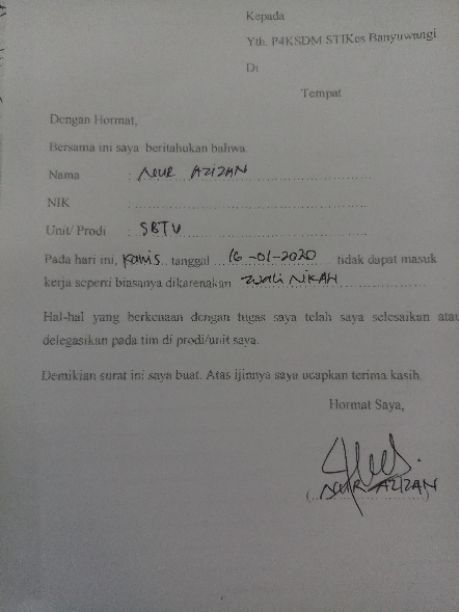 Kepada
Yth. P4KSDM STIKes Banyuwangi
Di
Tempat
Dengan Hormat,
Bersama ini saya beritahukan bahwa.
Nama : NUR AZIZAN
NIK :
Unit/ Prodi : SBTU
Pada hari ini, Kamis tanggal 16-01-2020 tidak dapat masuk
kerja seperti biasanya dikarenakan WALI NIKAH
Hal-hal yang berkenaan dengan tugas saya telah saya selesaikan atau
delegasikan pada tim di prodi/unit saya.
Demikian surat ini saya buat. Atas ijinnya saya ucapkan terima kasih.
Hormat Saya,
(NUR AZIZAN)